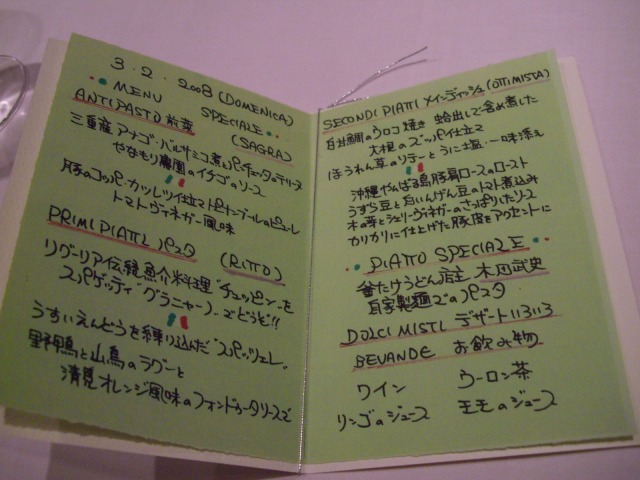 3・2・2008 (DOMENICA)
MENU SPECIALE
ANTIPASTO 前菜 (SAGRA)
三重産アナゴ・バルサミコ煮とパンチェッタのテリーヌ
やなもり農園のイチゴのソース
豚のコッパ・カツレツ仕立
トマトヴィネガー風味
PRIMI PIATTI パスタ (RITTO)
リグーリア伝統魚介料理"チュッピン"を
スパゲッティ"グラニャーノ"でどうぞ!!
うすいえんどうを練り込んだ"スパッツェレ"
野鴨と山鳥のラグーと
清見オレンジ風味のフォンドゥータソースで
SECONDI PIATTI メインディッシュ (OTTIMISTA)
白甘鯛のウロコ焼き 蛤出しで含め煮した
大根のズッパ仕立て
ほうれん草のソテーとうに土星・一味添え
沖縄やんばる島豚肩ロースのロースト
うずら豆と白いんげん豆のトマト煮込み
木の芽とシェリーヴィネガーのさっぱりしたソース
カリカリに仕上げた豚皮をアクセントに
PIATTO SPECIALE
釜たけうどん店主 木田武史
自家製麺でのパスタ
DOLCI MISTI デザートいろいろ
BEVANDE お飲み物
ワイン ウーロン茶
リンゴのジュース モモのジュース